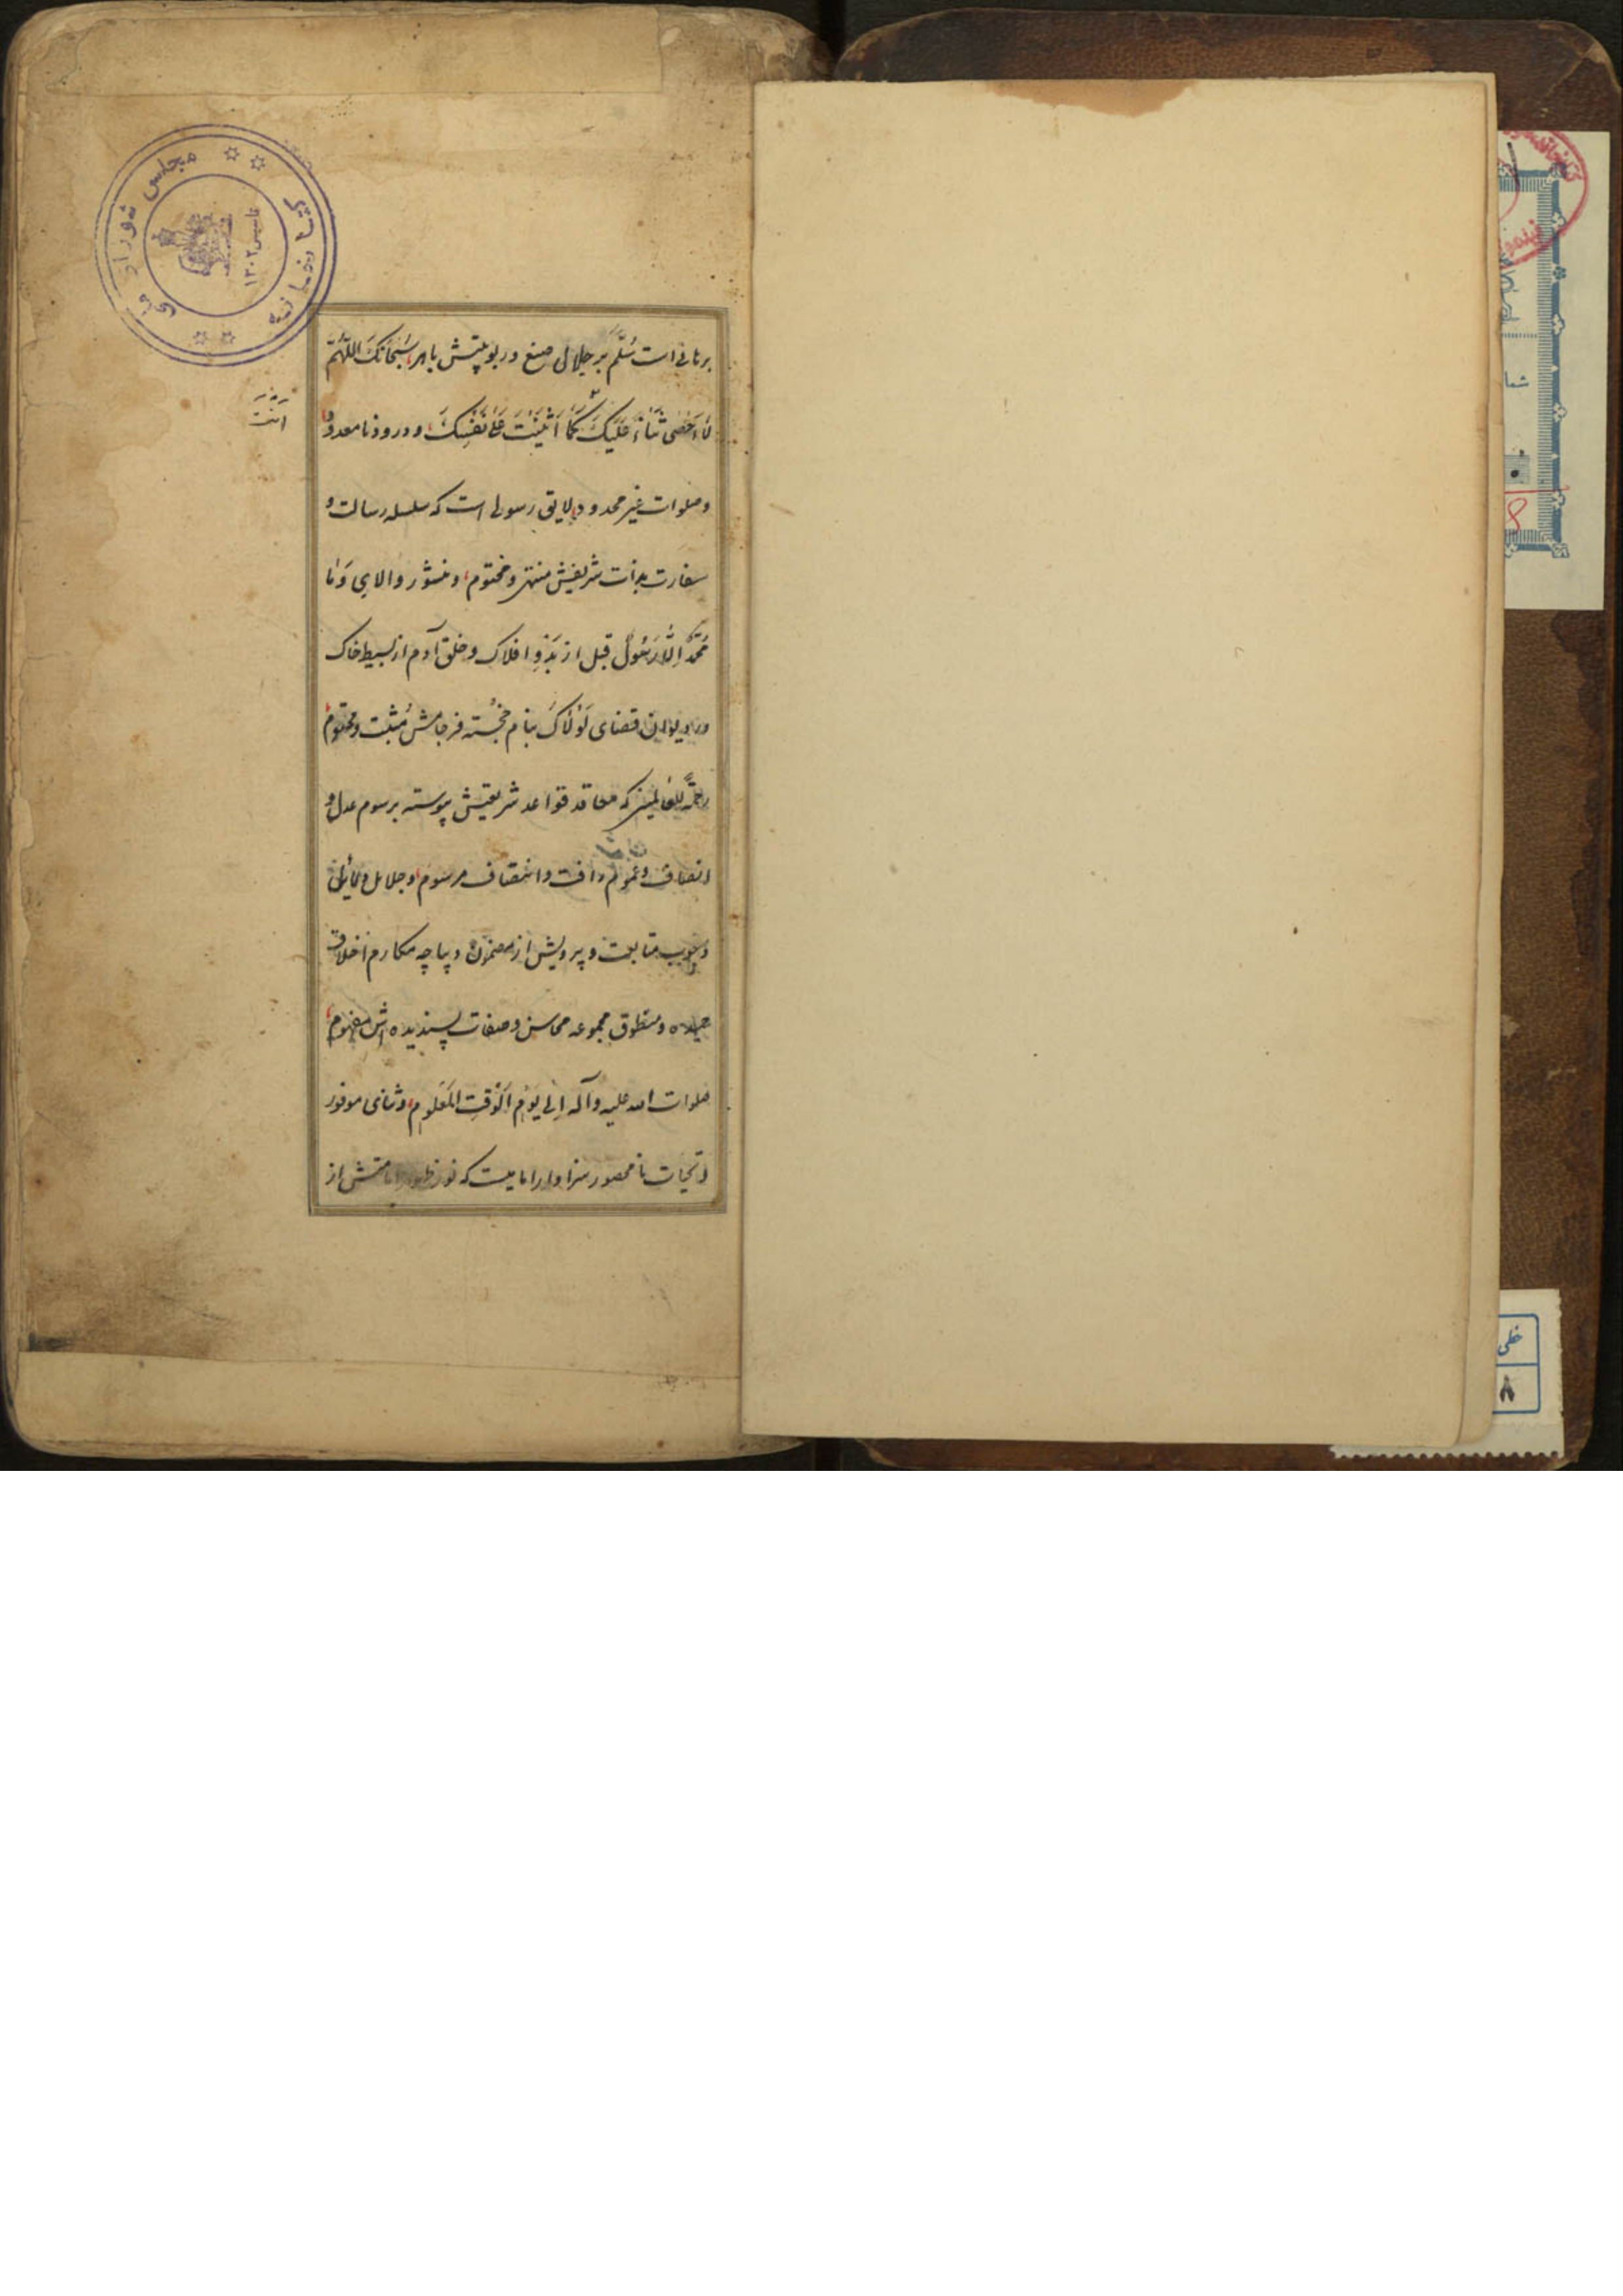 برهانی است مسلّم بر جلال صنع و ربوبیتش باهر، سُبحانَکَ اللّٰهُمَّ
لا اُحْصی ثَناءً عَلَیْکَ کَما اَثْنَیْتَ عَلیٰ نَفْسِکَ، و درود نامعدود
اَنْتَ
وصلوات غیر محدود، لایق رسولی است که سلسله رسالت و
سفارت بذات شریفش منتهی و مختوم، و منشور والای وَما
مُحَمَّدٌ اِلّا رَسُولٌ قبل از بَدْوِ افلاک و خلق آدم از بسیط خاک
در دیوان قضای لَوْلاکَ بنام خجسته فرجامش مُثبت و محتوم،
رَحْمَةً لِلْعالَمین که معاقد قواعد شریعتش پیوسته برسوم عدل و
انصاف و عموم رافت و انتصاف مرسوم، و جلایل دلائل
وجوب متابعت و پیرویش از مضمون دیباچه مکارم اخلاق
حمیده و منطوق مجموعه محاسن وصفات پسندیده اش مفهوم،
صلوات الله علیه وآله اِلی یَوْمِ الْوَقْتِ الْمَعْلُومِ، و ثنای موفور
و تحیات نامحصور سزاوار امامیست که نور ظهور امامتش از
کتابخانه مجلس شورای ملی
تاسیس ۱۳۰۲
خطی
۸